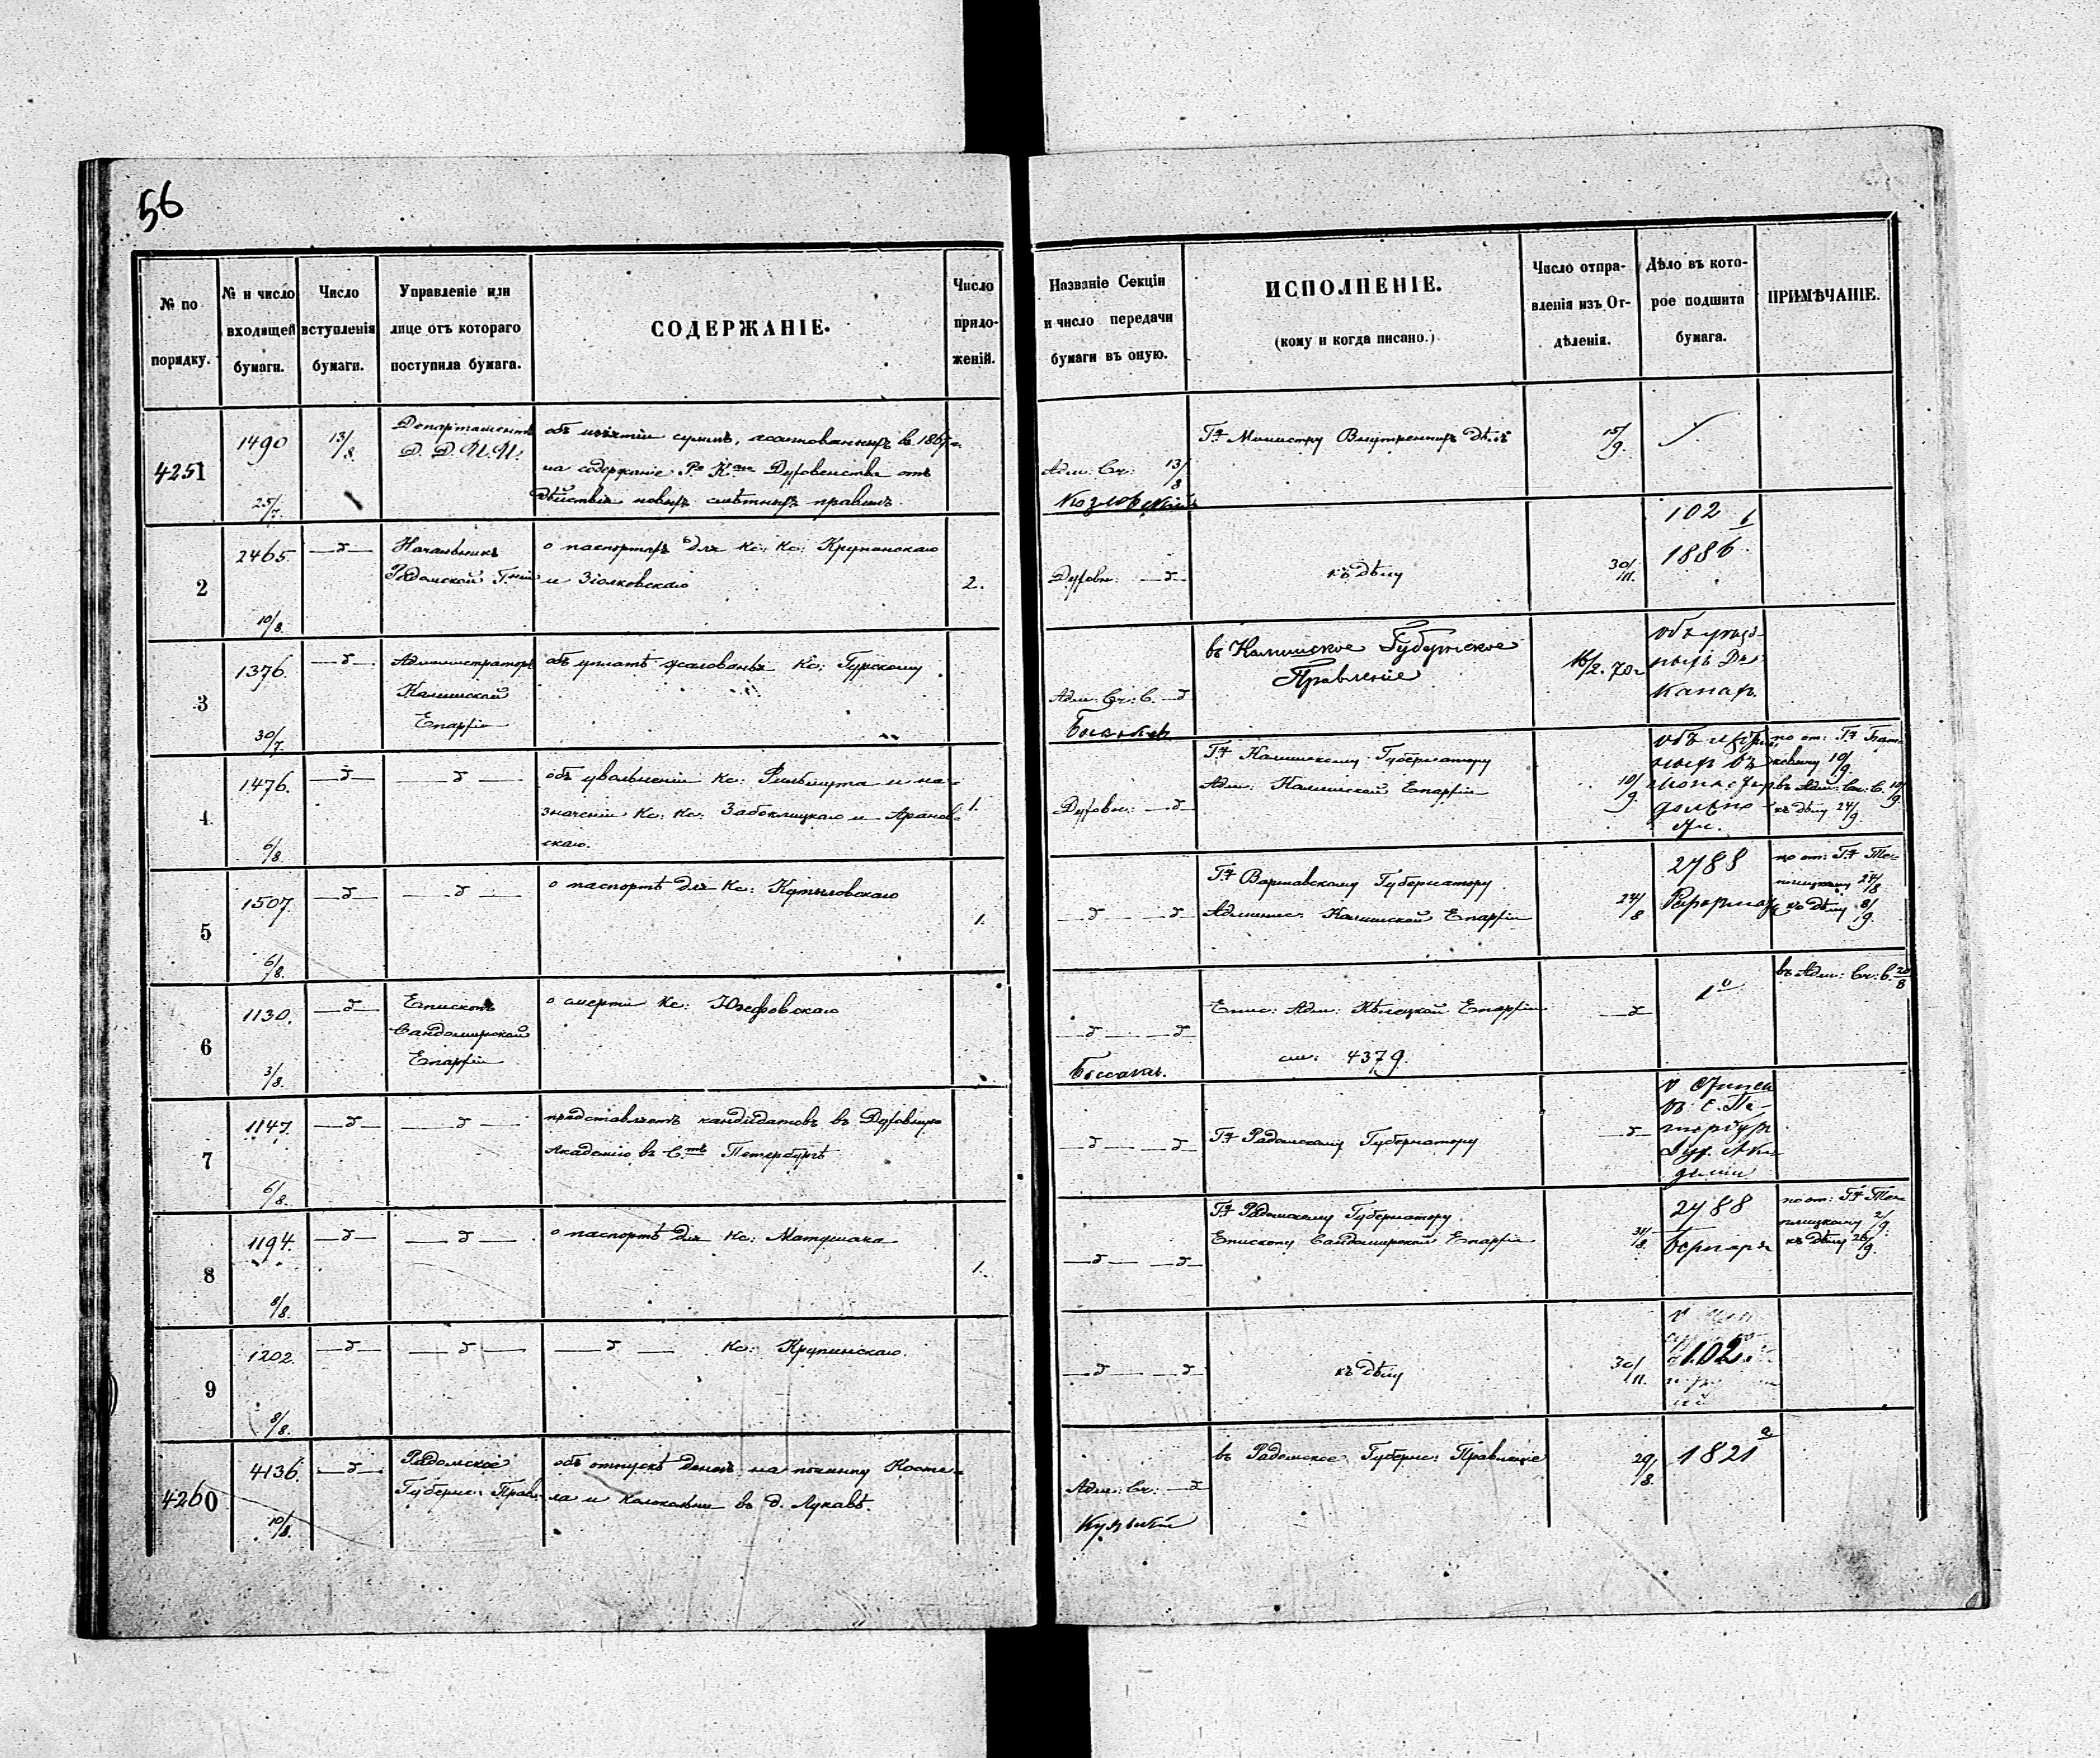 56
№ по порядку.
№ и число входящей бумаги.
Число вступленія бумаги.
Управленіе или лице отъ котораго поступила бумага.
СОДЕРЖАНІЕ.
Число прило-женій.
Названіе Секціи и число передачи бумаги въ оную.
ИСПОЛНЕНІЕ.
(кому и когда писано.)
Число отпра-вленія изъ От-дѣленія.
Дѣло въ кото-рое подшита бумага.
ПРИМѢЧАНІЕ.
4251
1490
25/7.
13/8
Департаментъ
Д. Д. И. И.
объ изъятіи суммъ, ассигнованныхъ въ 1867 г.
на содержаніе Р. К. Духовенства отъ
дѣйствія новыхъ смѣтныхъ правилъ.
Адм: Сч: 13/8
Козловскій
Гну Министру Внутреннихъ Дѣлъ
15/9.
2
2465
10/8.
—д—
Начальникъ
Радомской Губніи
о паспортахъ для Кс: Кс: Крупинскаго
и Зіолковскаго
2.
Духовн: —д—
къ дѣлу
30/III.
102 б
1886
3
1376.
30/7.
—д—
Администраторъ
Калишской
Епархіи
объ уплатѣ жалованья Кс: Гурскому
Адм: Сч: С. —д
въ Калишское Губернское
Правленіе
16/2. 70 г
4
1476.
6/8.
—д—
—д—
объ увольненіи Кс: и на-
значеніи Кс: Кс: Забоклицкаго и
скаго.
1.
Духовн: —д—
Гну Калишскому Губернатору
Адм: Калишской Епархіи
10/9.
по от: Гну
19/9
въ Адм: Сч: С. 19/9
къ дѣлу 24/9
5
1507.
6/8.
—д—
—д—
о паспортѣ для Кс: Кутыловскаго
1.
—д— —д—
Гну Варшавскому Губернатору
Админис: Калишской Епархіи
24/8
2788
по от: Гну
27/8
къ дѣлу 8/9.
6
1130.
3/8.
—д—
Епископъ
Сандомирской
Епархіи
о смерти Кс: Юзефовскаго
—д— —д—
Епис: Адм: Кѣлецкой Епархіи
см: 4379.
—д—
въ Адм: Сч: С. 20/8
7
1147.
6/8.
—д—
—д—
представляетъ кандидатовъ въ Духовную
Академію въ С.тъ Петербургѣ
—д— —д—
Гну Радомскому Губернатору
—д—
8
1194.
8/8.
—д—
—д—
о паспортѣ для Кс: Матушака
1.
—д— —д—
Гну Радомскому Губернатору
Епископу Сандомирской Епархіи
31/8.
2788
по от: Гну
2/9
къ дѣлу 26/9.
9
1202.
8/8.
—д—
—д—
—д— Кс: Крупинскаго.
—д— —д—
къ дѣлу
30/III.
102.
4260
4136.
10/8.
—д—
Радомское
Губерн: Прав:
объ отпускѣ денегъ на починку Косте-
ла и колокольни въ д. Лукавѣ.
Адм: Сч: —д—
въ Радомское Губерн: Правленіе
29/8.
1821 а